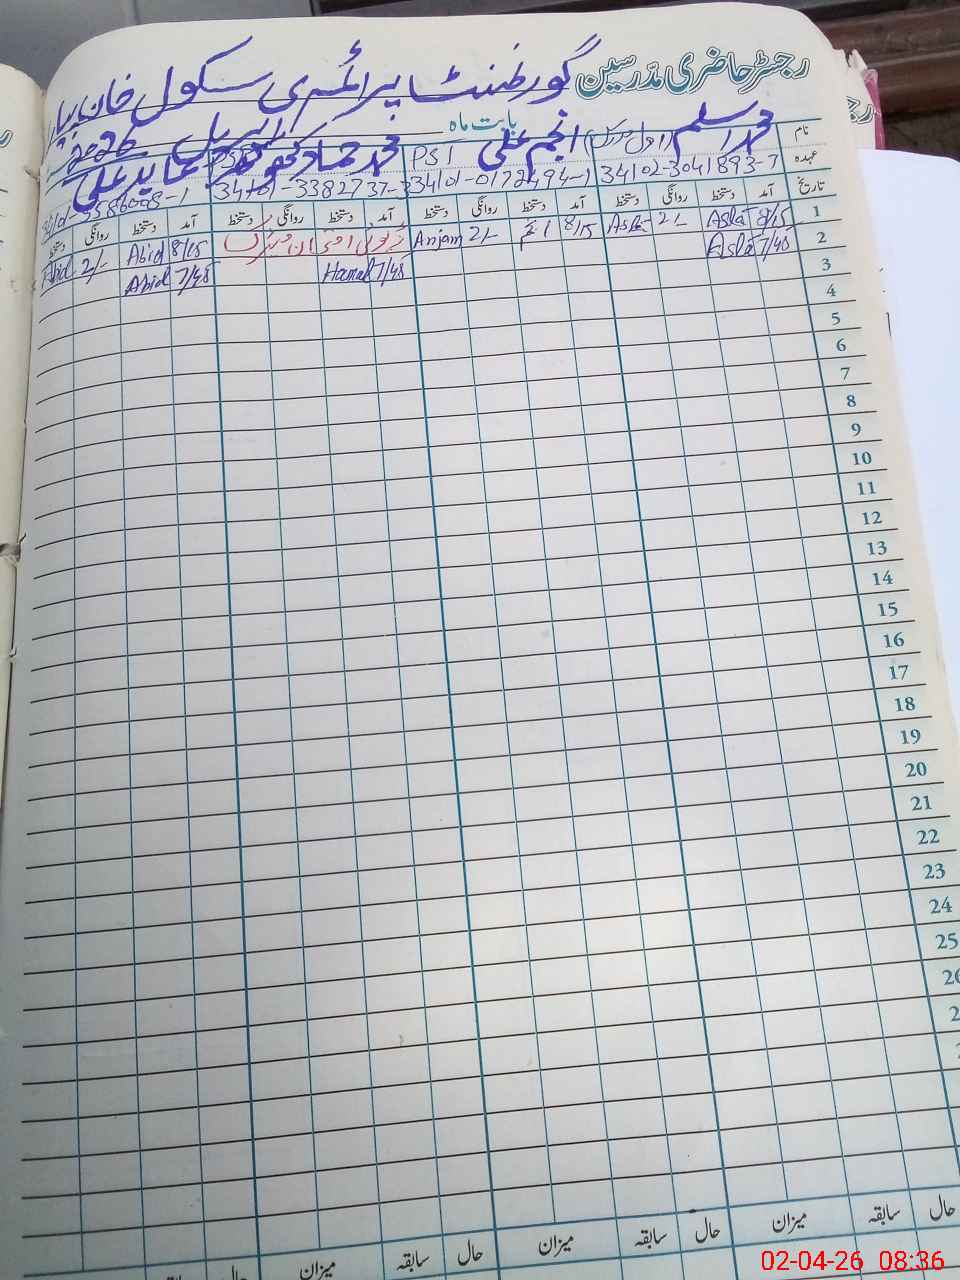 رجسٹر حاضری مدرسین گورنمنٹ پرائمری سکول خان
بابت ماہ اپریل 2026
نام محمد اسلم (اول مدرس) انجم علی PST محمد حماد عابد علی
عہدہ 34102-3041893-7 34101-0172494-1 34101-3382737-3
تاریخ آمد دستخط روانگی دستخط آمد دستخط روانگی دستخط آمد دستخط روانگی دستخط آمد دستخط روانگی دستخط
1 8/15 Asla 2/- 8/15 انجم 2/- Anjam 8/15 Abid 2/- Abid
2 7/48 Asla 7/48 Hamad 7/48 Abid
3
4
5
6
7
8
9
10
11
12
13
14
15
16
17
18
19
20
21
22
23
24
25
26
حال سابقہ میزان حال سابقہ میزان حال سابقہ میزان حال
02-04-26 08:36